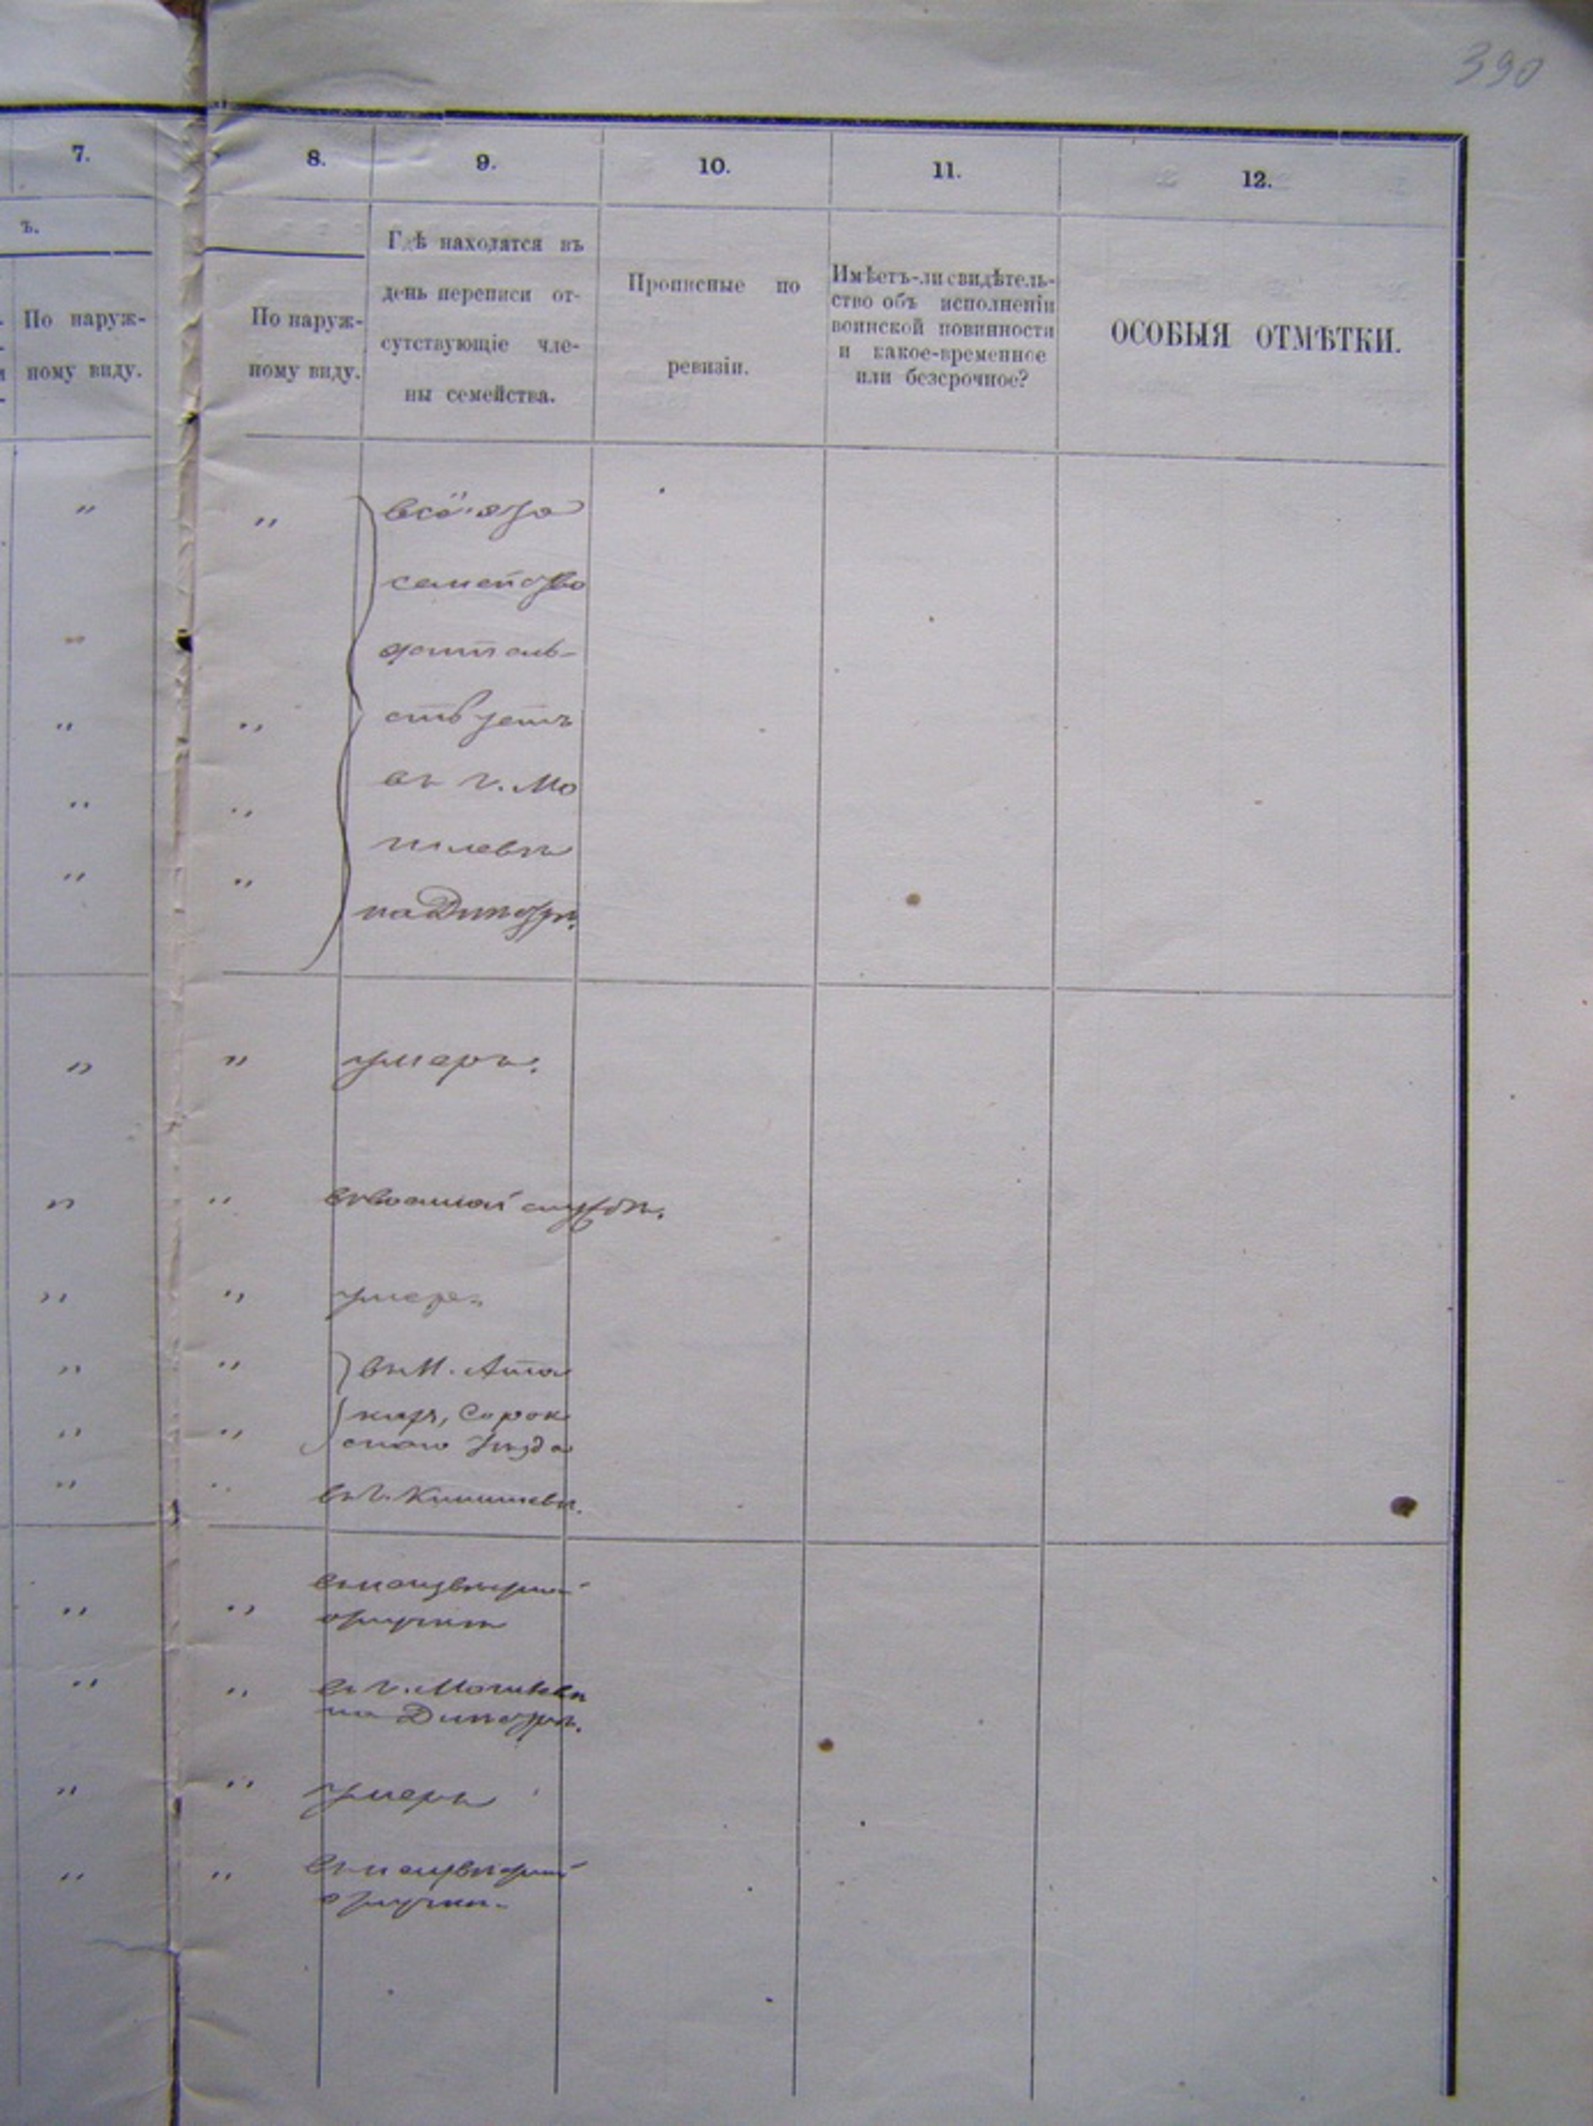 390
7. 8. 9. 10. 11. 12.
ъ.
По наруж-
ному виду.
По наруж-
ному виду.
Гдѣ находятся въ
день переписи от-
сутствующіе чле-
ны семейства.
Прописные по
ревизіи.
Имѣетъ-ли свидѣтель-
ство объ исполненіи
воинской повинности
и какое-временное
или безсрочное?
ОСОБЫЯ ОТМѢТКИ.
" " всё это
семейство
"
" " ствуетъ
" " въ г. Мо
" " гилевѣ
на Днѣстрѣ.
" " умеръ.
" " въ военной службѣ.
" " умеръ
" " въ м. Ата
" " кахъ, Сорок
скаго уѣзда
" " въ г. Кишиневѣ.
" "
отлучкѣ
" " въ г. Могилевѣ
на Днѣстрѣ.
" " умеръ
" "
отлучкѣ.